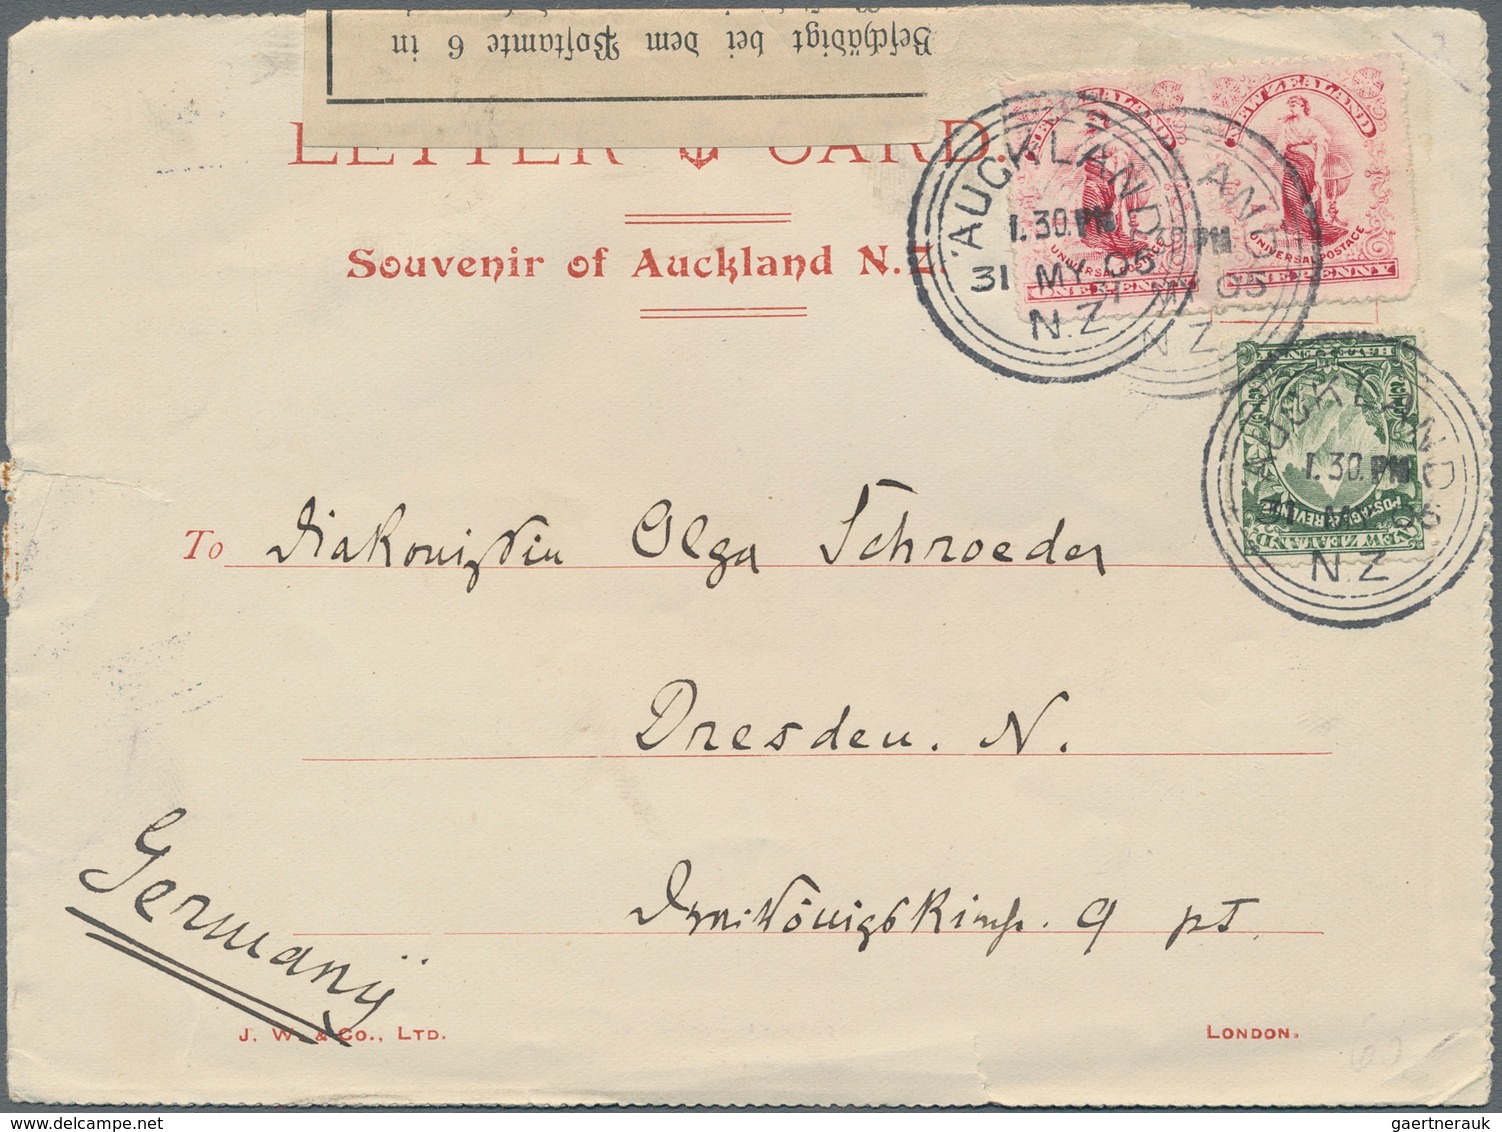 Beschädigt bei dem Postamte 6 in
LETTER CARD.
Souvenir of Auckland N.Z.
NEW ZEALAND
UNIVERSAL POSTAGE
ONE PENNY
NEW ZEALAND
UNIVERSAL POSTAGE
ONE PENNY
AUCKLAND
1.30.PM
31 MY 05
N.Z
LAND
30.PM
31 MY 05
N Z
POSTAGE & REVENUE
NEW ZEALAND
AUCKLAND
1.30.PM
31 MY 05
N.Z
To Diakonissin Olga Schroeder
Dresden. N.
Germany
9 pt.
J. W. & Co., LTD.
LONDON.
gaertnerauk @ delcampe.net